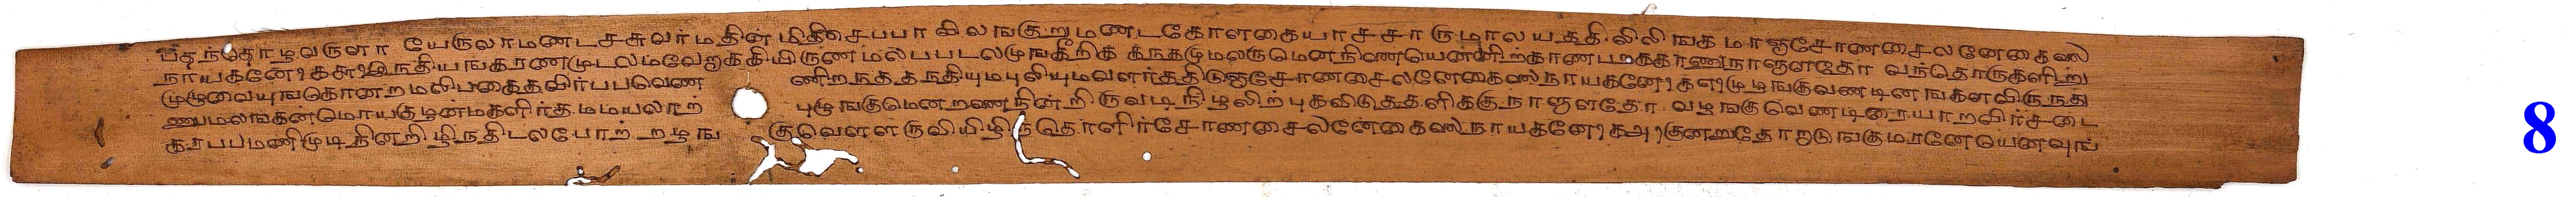 பத ந்தொழ வருளா யேருலாமணடசசுவர்மதின மிதிசெபபா விலஙகுறுமணடகோளகையாசசாருமாலயததி லிலிஙகமாஞசோணசைலனேகைலை
நாயகனே ௧௬ இநதியஙகரணமுடலமவேறுககியிருணமலபபடலமுஙகீறிக கநதமுமலருமெனநிணயெனனிறகாணபறககாணுநாளுளதோ வந்தொருகளிற்று
முழுவையுஙடுகானறமலிபகைதவிர்பபவெண ணிறநத தநதியுமபுலியுமவளர்ததிடுஞசோணசைலனேகைலைநாயகனே ௧௭ முழஙகுவணடினஙகளவிருநது
ணுமலஙகனமொயகுழனமகளிர்தமமயலாற புழுஙகுமெனறணநினறிருவடிநிழலிறபுகவிடுததளிககுநாளுளதோ வழஙகுவெணடிரையாறவிர்சடை
கரபபமணிமுடிநினறிழிநதிடலபோறறழங குவெளளருவியிழிநதொளிர்சோணசைலனேகைலைநாயகனே ௧௮ குனறுதோறாடுஙகுமரனேயெனவுங